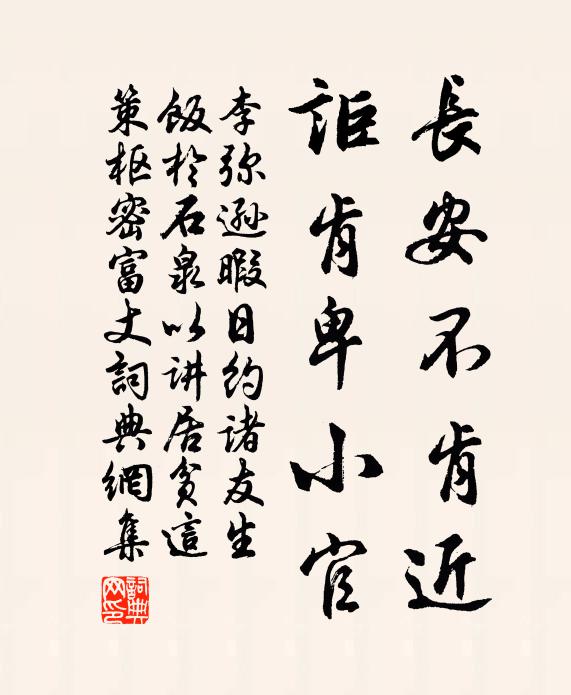 長安不肯近
詎肯卑小官
李弥逊暇日约诸友生
飯於石泉以讲居貧這
策枢密富丈詞典網集
詞典网印